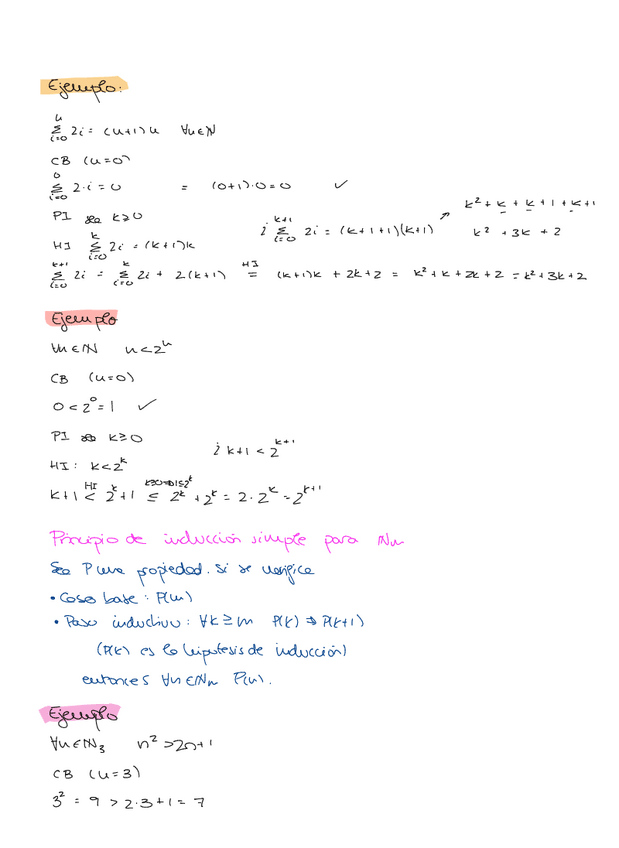 Ejemplo:
n∑i=0 2i = (n+1)n ∀n∈N
CB (n=0)
0∑i=0 2·i = 0 = (0+1)·0=0 ✓
PI sea k≥0
HI k∑i=0 2i = (k+1)k
¿ k+1∑i=0 2i = (k+1+1)(k+1) ↗ k²+k+k+1+k+1
k²+3k+2
k+1∑i=0 2i = k∑i=0 2i + 2(k+1) HI= (k+1)k + 2k+2 = k²+k+2k+2 = k²+3k+2
Ejemplo
∀n∈N n<2ⁿ
CB (n=0)
0<2⁰=1 ✓
PI sea k≥0
¿ k+1<2^(k+1)
HI: k<2^k
k+1 HI< 2^k+1 k≥0⇒1≤2^k ≤ 2^k+2^k = 2·2^k = 2^(k+1)
Principio de inducción simple para Nm
Sea P una propiedad. Si se verifica
• Caso base: P(m)
• Paso inductivo: ∀k≥m P(k) ⇒ P(k+1)
(P(k) es la hipotesis de inducción)
entonces ∀n∈Nm P(n).
Ejemplo
∀n∈N₃ n²>2n+1
CB (n=3)
3² = 9 > 2·3+1 = 7